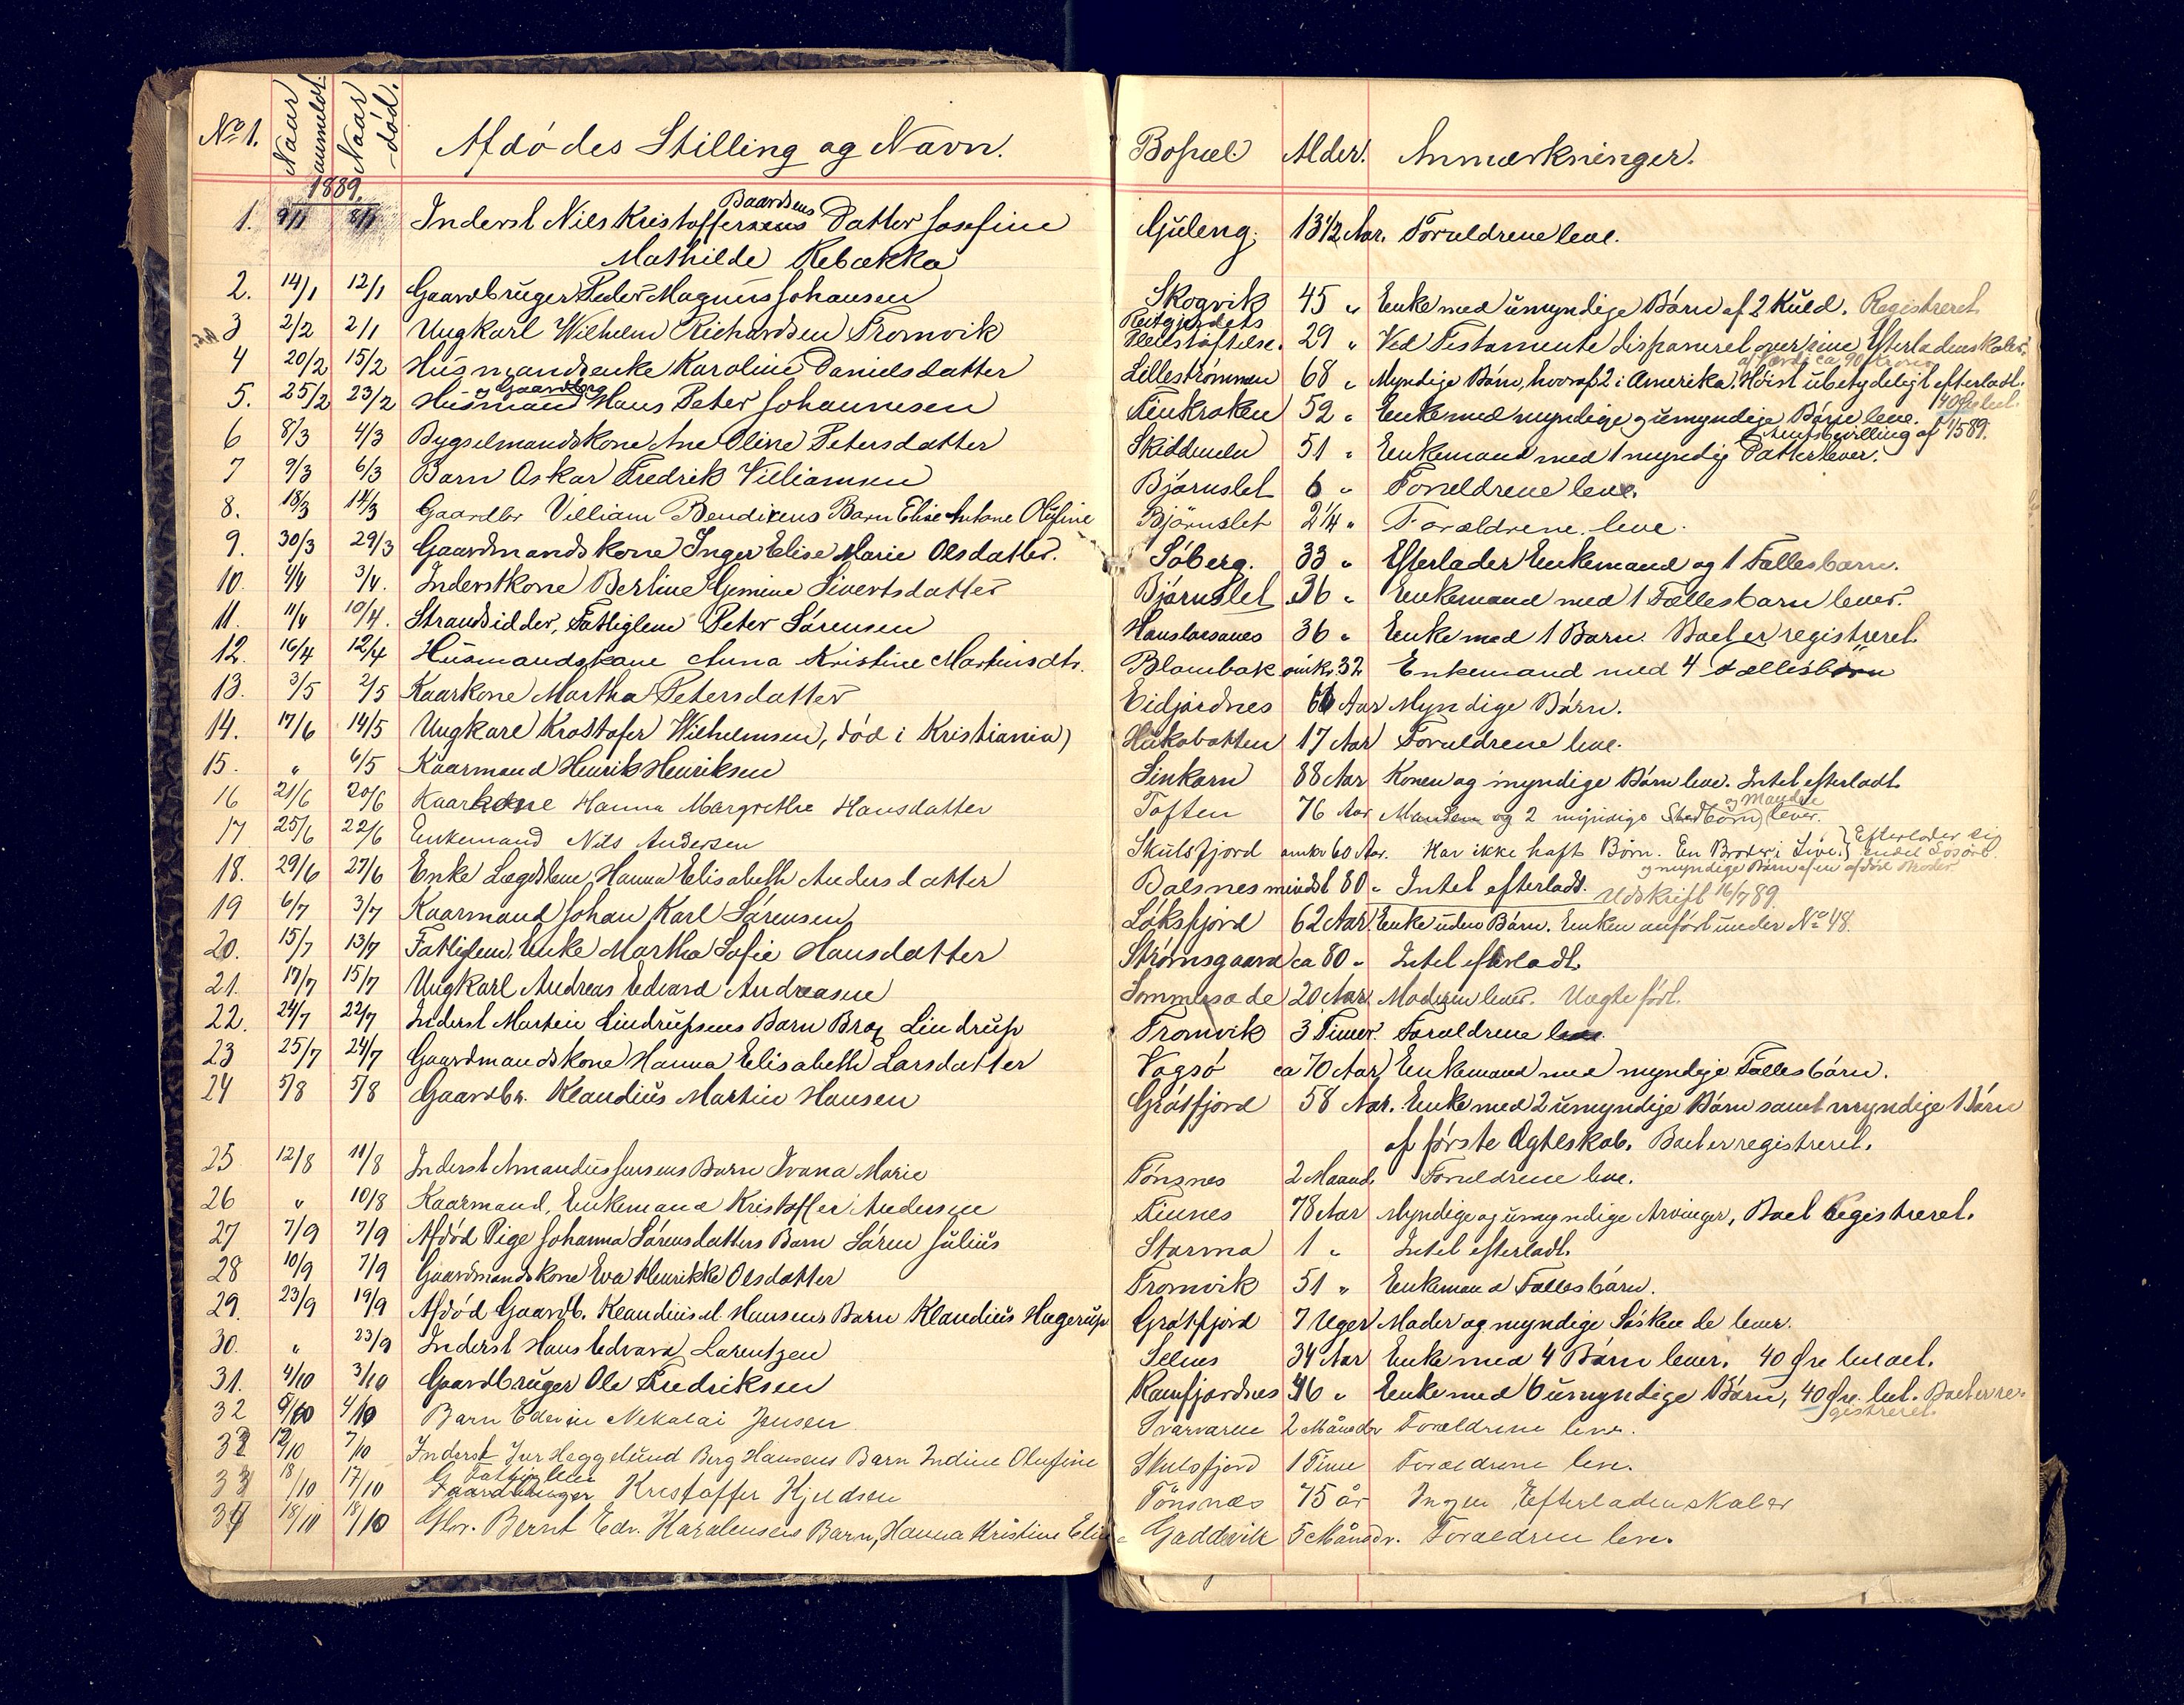 No 1. Naar anmeldt. Naar död. Afdödes Stilling og Navn. Bopæl. Alder. Anmærkninger.
1889.
1. 9/1 8/1 Inderst Nils Kristoffersens Baardsens Datter Josefine Guleng. 13 1/2 Aar. Foreldrene leve.
Mathilde Rebækka
2. 14/1 12/1 Gaardbruger Peder Magnus Johansen Skogvik 45 " Enke med umyndige Børn af 2 Kuld. Registreret
3 2/2 2/1 Ungkarl Wilhelm Richardsen Tromvik 29 " Ved Testamente disponeret over sine Efterladenskaber.
af Værdi ca 90 Kroner
4 20/2 15/2 Husmandsenke Karoline Danielsdatter Lillestrømmen 68 " Myndige Børn, hvoraf 2 i Amerika. Høist ubetydeligt efterladt.
5. 25/2 23/2 Husmand og Gaardbrg Hans Peter Johannesen Finkroken 52 " Enke med myndige og umyndige Børn leve.
6 8/3 4/3 Bygselmandskone Ane Oline Petersdatter Skiddenelv 51 " Enkemand med 1 myndig Datter lever.
7 9/3 6/3 Barn Oskar Fredrik Villiamsen Bjørnslet 6 " Foreldrene leve.
8. 18/3 14/3 Gaardbr Villiam Bendixens Barn Elise Antone Olufine Björnslet 2 1/4 " Forældrene leve.
9. 30/3 29/3 Gaardmandskone Inger Elise Marie Olsdatter. Søberg. 33 " Efterlader Enkemand og 1 Fællesbarn.
10. 4/4 3/4. Inderstkone Berline Elgmine Sivertsdatter Bjørnslet 36 " Enkemand med 1 Fællesbarn lever.
11. 11/4 10/4. Strandsidder, Fattiglem Peter Sørensen Hanslarsanes 36 " Enke med 1 Barn. Boet er registreret.
12. 16/4 12/4 Husmandskone Anna Kristine Martinsdtr. Blambak omkr. 32 Enkemand med 4 Fællesbørn
13. 3/5 2/5 Kaarkone Martha Petersdatter Eidjordnes 66 Aar Myndige Børn.
14. 17/6 14/5 Ungkarl Krostofer Wilhelmsen, død i Kristiania) Hukobotten 17 Aar Foreldrene leve.
15. " 6/5 Kaarmand Henrik Henriksen Sinkarn 88 Aar Konen og myndige Børn leve. Intet efterladt.
16 21/6 20/6 Kaarkone Hanna Margrethe Hansdatter Toften 76 Aar Manden og 2 myndige Stedbørn og Manden lever.
17 25/6 22/6 Enkemand Nils Andersen Skulsfjord omkr 60 Aar. Har ikke haft Børn. En Broder i Live. Efterlader sig endel Løsøre.
og myndige Børn af en afdød Broder
18. 29/6 27/6 Enke Lægdslem, Hanna Elisabeth Andersdatter Balsnes mindst 80 " Intet efterladt. Udskrift 16/7 89.
19 6/7 3/7 Kaarmand Johan Karl Sørensen Løksfjord 62 Aar Enke uden Børn. Enken anført under No 48.
20. 15/7 13/7 Fattiglem, Enke Martha Sofie Hansdatter Strømsgaard ca 80 " Intet efterladt.
21. 17/7 15/7 Ungkarl Andreas Edvard Andreasen Sommersæde 20 Aar Moderen lever. Uægte født.
22. 24/7 22/7 Inderst Martin Lindrupsens Barn Brox Lindrup Tromvik 3 Timer. Foreldrene leve.
23 25/7 24/7 Gaardmandskone Hanna Elisabeth Larsdatter Vogsö ca 70 Aar Enkemand med myndige Fællesbørn.
24 5/8 5/8 Gaardbr. Klaudius Martin Hansen Grøtfjord 58 Aar. Enke med 2 umyndige Børn samt myndige Børn
af første Ægteskab. Boet er registreret.
25 12/8 11/8 Inderst Amandus Jensens Barn Ivana Marie Tønsnes 2 Maand. Foreldrene leve.
26 " 10/8 Kaarmand, Enkemand Kristoffer Andersen Finnes 78 Aar Myndige og umyndige Arvinger, Boet Registreret.
27 7/9 7/9 Afdød Pige Johanna Sørensdatters Barn Søren Julius Starma 1 " Intet efterladt.
28 10/9 7/9 Gaardmandskone Eva Henrikke Olsdatter Tromvik 51 " Enkemand Fællesbørn.
29. 23/9 19/9 Afdød Gaardb. Klaudius M. Hansens Barn Klaudius Hagerup Grøtfjord 7 Uger Moder og myndige Søskende lever.
30. " 23/9 Inderst Hans Edvard Lorentzen Selnes 34 Aar Enke med 4 Børn lever. 40 Øre betalt.
31. 4/10 3/10 Gaardbruger Ole Fredriksen Ramfjordnes 46 " Enke med 6 umyndige Børn, 40 Øre bet. Boet er registreret.
32 8/10 4/10 Barn Edevin Nekolai Jensen Svarvaren 2 Måneder Forældrene leve.
32 12/10 7/10 Inderst Ivar Heggelund Berg Hansens Barn Indine Olufine Skulsfjord 1 Time Forældrene leve.
33 18/10 17/10 Fattiglem Gaardbruger Kristoffer Kjeldsen Tönsnæs 75 år Ingen Efterladenskaber
34 18/10 18/10 Gbr. Bernt Edv. Karolensens Barn, Hanna Kristine Eline Gaddevik 5 Måneder. Forældren leve.